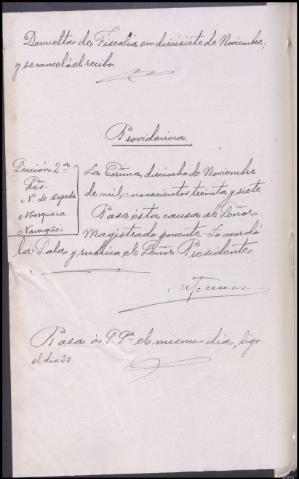 Devuelta de Fiscalia en diecisiete de Noviembre,
y se canceló el recibo
Providencia
Sección 2ª
Sres.
N. de Cepeda
Mosquera
Navagües
La Coruña, dieciocho de Noviembre
de mil novecientos treinta y siete
Pase esta causa al Señor
Magistrado ponente. Lo acordó
la Sala, y rubrica el Señor Presidente
Pasa a P. Pte el mismo dia, digo
el dia 20